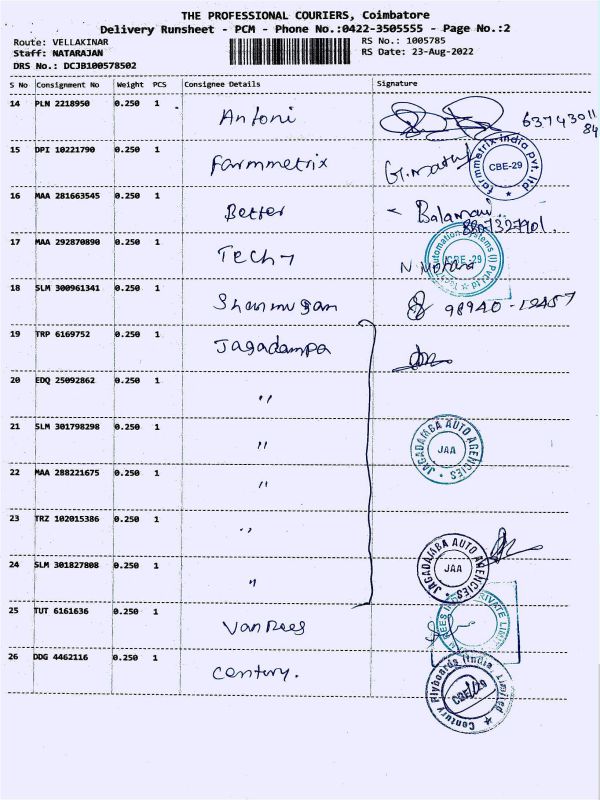 THE PROFESSIONAL COURIERS, Coimbatore
Delivery Runsheet - PCM - Phone No.:0422-3505555 - Page No.:2
Route: VELLAKINAR RS No.: 1005785
Staff: NATARAJAN RS Date: 23-Aug-2022
DRS No.: DCJB100578502
S No Consignment No Weight PCS Consignee Details Signature
14 PLN 2218950 0.250 1 Antoni
15 DPI 10221790 0.250 1 Farmmetrix
farmmetrix india pvt. ltd CBE-29
16 MAA 281663545 0.250 1 Better Balamani
8807327901.
17 MAA 292870890 0.250 1 Tech
18 SLM 300961341 0.250 1 Shanmugam 98940-12457
19 TRP 6169752 0.250 1 Jagadampa
20 EDQ 25092862 0.250 1 "
21 SLM 301798298 0.250 1 "
JAGADAMBA AUTO AGENCIES JAA
22 MAA 288221675 0.250 1 "
23 TRZ 102015386 0.250 1 "
24 SLM 301827808 0.250 1 "
JAGADAMBA AUTO AGENCIES JAA
25 TUT 6161636 0.250 1 VanRees
26 DDG 4462116 0.250 1 Century.
Century Plyboards (India) Limited